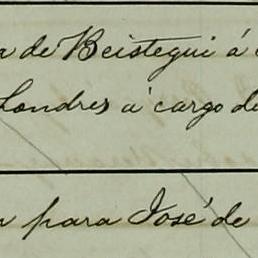 a de Beistegui á
Londres á cargo de
para José de